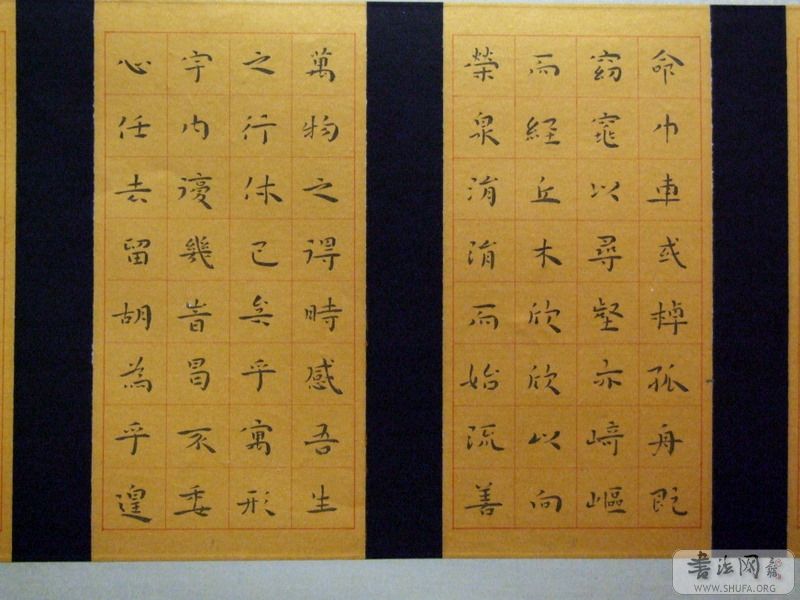 命巾車或棹孤舟既
窈窕以尋壑亦崎嶇
而經丘木欣欣以向
榮泉涓涓而始流善
萬物之得時感吾生
之行休已矣乎寓形
宇內復幾旹曷不委
心任去留胡為乎遑
書法网
WWW.SHUFA.ORG